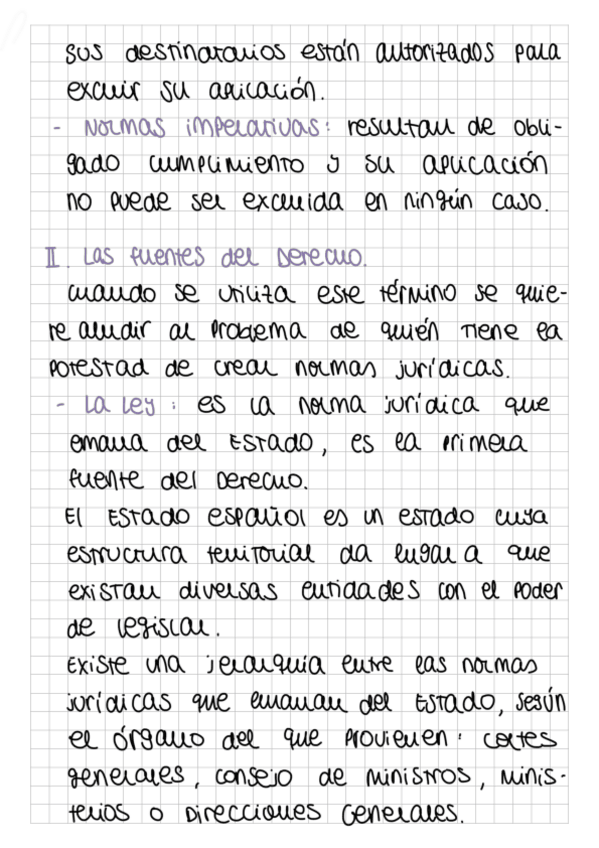 sus destinatarios están autorizados para
excluir su aplicación.
- Normas imperativas: resultan de obli-
gado cumplimiento y su aplicación
no puede ser excluida en ningún caso.
II. Las fuentes del Derecho.
cuando se utiliza este término se quie-
re aludir al problema de quién tiene la
potestad de crear normas jurídicas.
- La Ley: es la norma jurídica que
emana del Estado, es la primera
fuente del Derecho.
El Estado español es un estado cuya
estructura territorial da lugar a que
existan diversas entidades con el poder
de legislar.
Existe una jerarquía entre las normas
jurídicas que emanan del Estado, según
el órgano del que provienen: cortes
generales, consejo de ministros, minis-
terios o Direcciones Generales.